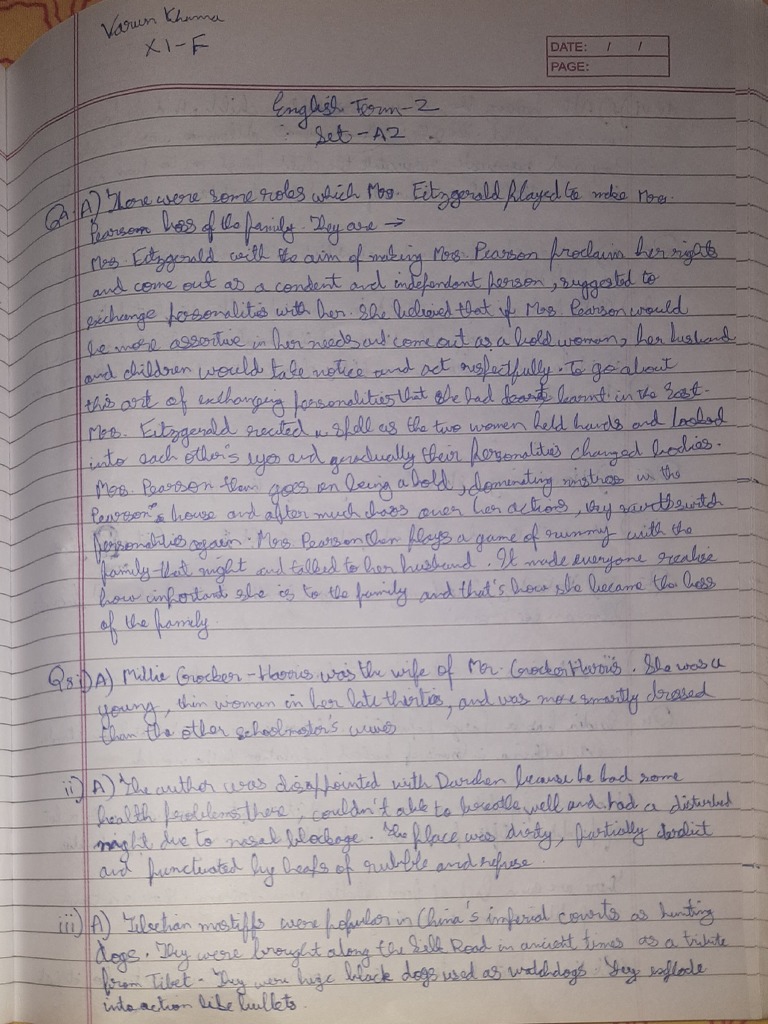 Varun Khanna
XI-F
DATE: / /
PAGE:
English Term-2
Set-A2
Q9. A) There were some roles which Mrs. Fitzgerald played to make Mrs.
Pearson boss of the family. They are →
Mrs Fitzgerald with the aim of making Mrs. Pearson proclaim her rights
and come out as a condent and independant person, suggested to
exchange personalities with her. She believed that if Mrs Pearson would
be more assertive in her needs and come out as a bold woman, her husband
and children would take notice and act respectfully. To go about
this art of exchanging personalities that she had learnt in the East.
Mrs. Fitzgerald recited a spell as the two women held hands and looked
into each other's eyes and gradually their personalities changed bodies.
Mrs. Pearson then goes on being a bold, dominating mistress in the
Pearson's house and after much chaos over her actions, they switch
personalities again. Mrs Pearson then plays a game of rummy with the
family that night and talked to her husband. It made everyone realise
how important she is to the family and that's how she became the boss
of the family.
Q8 i) A) Millie Crocker-Harris was the wife of Mr. Crocker Harris. She was a
young, thin woman in her late thirties, and was more smartly dressed
than the other schoolmaster's wives
ii) A) The author was disappointed with Darchen because he had some
health problems there, couldn't able to breathe well and had a disturbed
night due to nasal blockage. The place was dirty, partially derelict
and punctuated by heaps of rubble and refuse.
iii) A) Tibetan mastiffs were popular in China's imperial courts as hunting
dogs. They were brought along the Silk Road in ancient times as a tribute
from Tibet. They were huge black dogs used as watchdogs. They explode
into action like bullets.